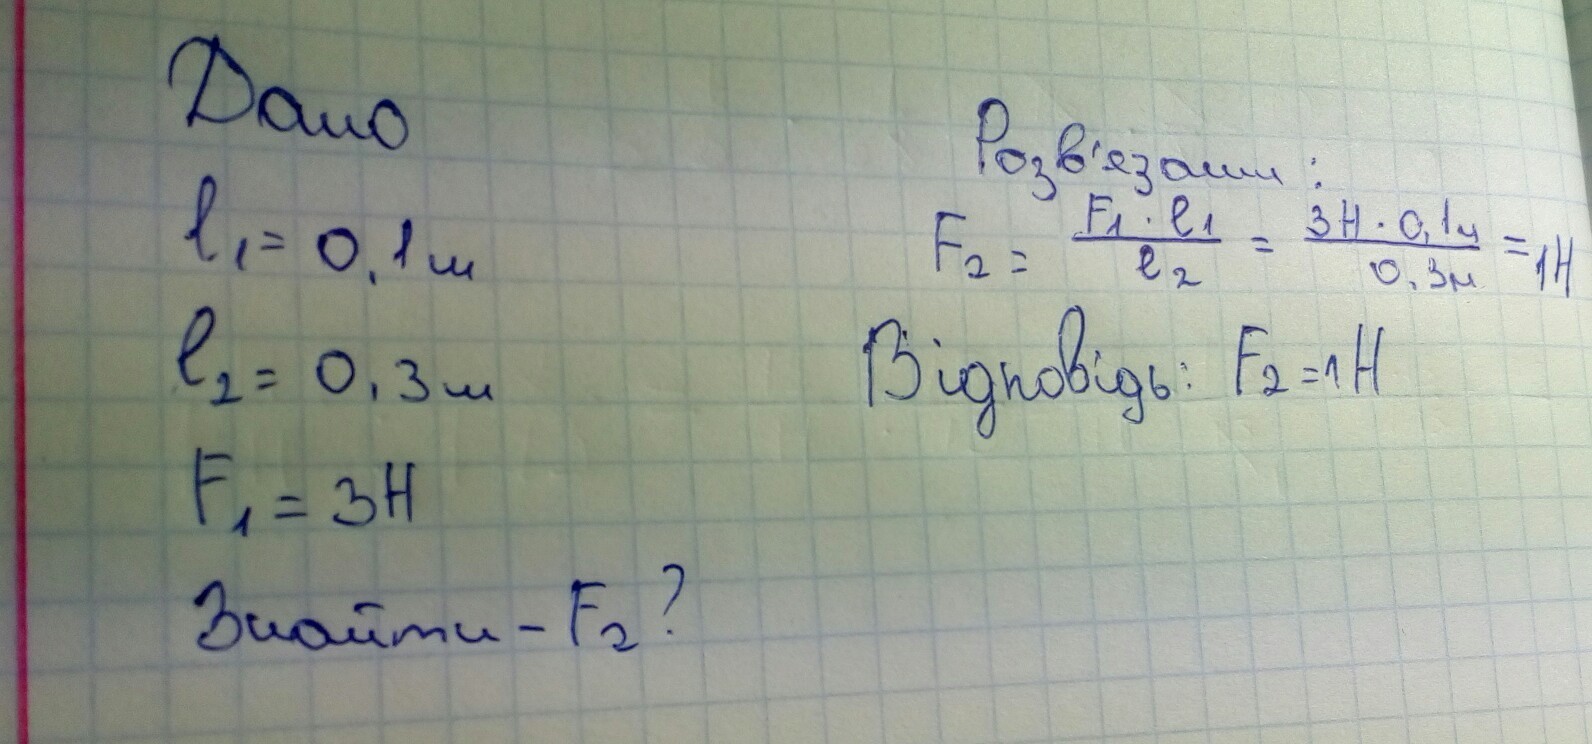 Дано
l₁ = 0,1 м
l₂ = 0,3 м
F₁ = 3Н
Знайти - F₂?
Розв'язати:
F₂ = F₁ · l₁ / l₂ = 3Н · 0,1м / 0,3м = 1Н
Відповідь: F₂ = 1Н